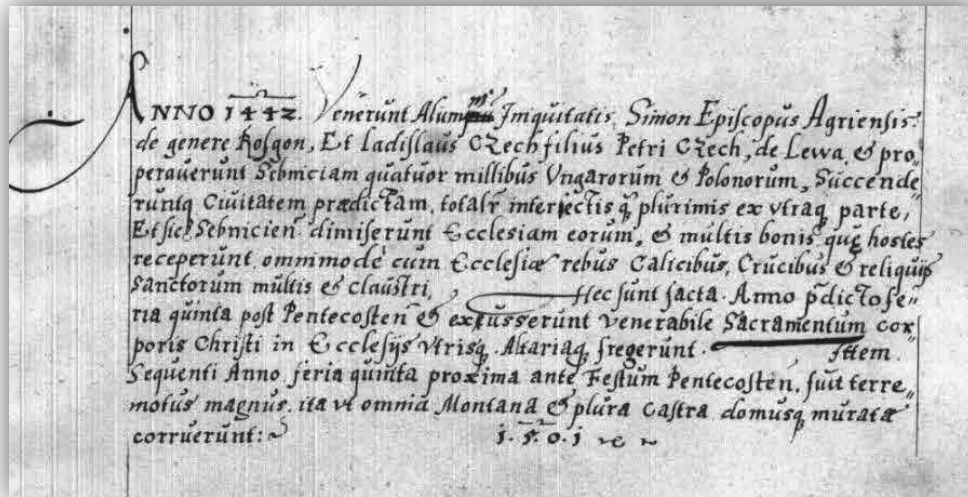 ANNO 1442. Venerunt Alumni Iniquitatis, Simon Episcopus Agriensis:
de genere Rosgon, Et Ladislaus Czech filius Petri Czech, de Lewa, & pro„
peraverunt Sebniciam quatuor millibus Vngarorum & Polonorum, Succende
runtq Civitatem prædictam, totalr interfectis q̄ plurimis ex vtraq parte,
Et sic Sebnicien̄ dimiserunt Ecclesiam eorum, & multis bonis quę hostes
receperunt, omnimode cum Ecclesiæ rebus Calicibus, Crucibus & reliquijs
Sanctorum multis & claustri, Hec sunt facta. Anno p̄dicto fe„
ria quinta post Pentecosten̄ & excusserunt venerabile Sacramentum cor
poris Christi in Ecclesijs vtrisq. Altariaq fregerunt. Ittem.
Sequenti Anno feria quinta proxima ante Festum Pentecosten, fuit terre„
motus magnus, ita vt omnia Montana & plura Castra domusq muratæ
corruerunt:
1.5.0.1